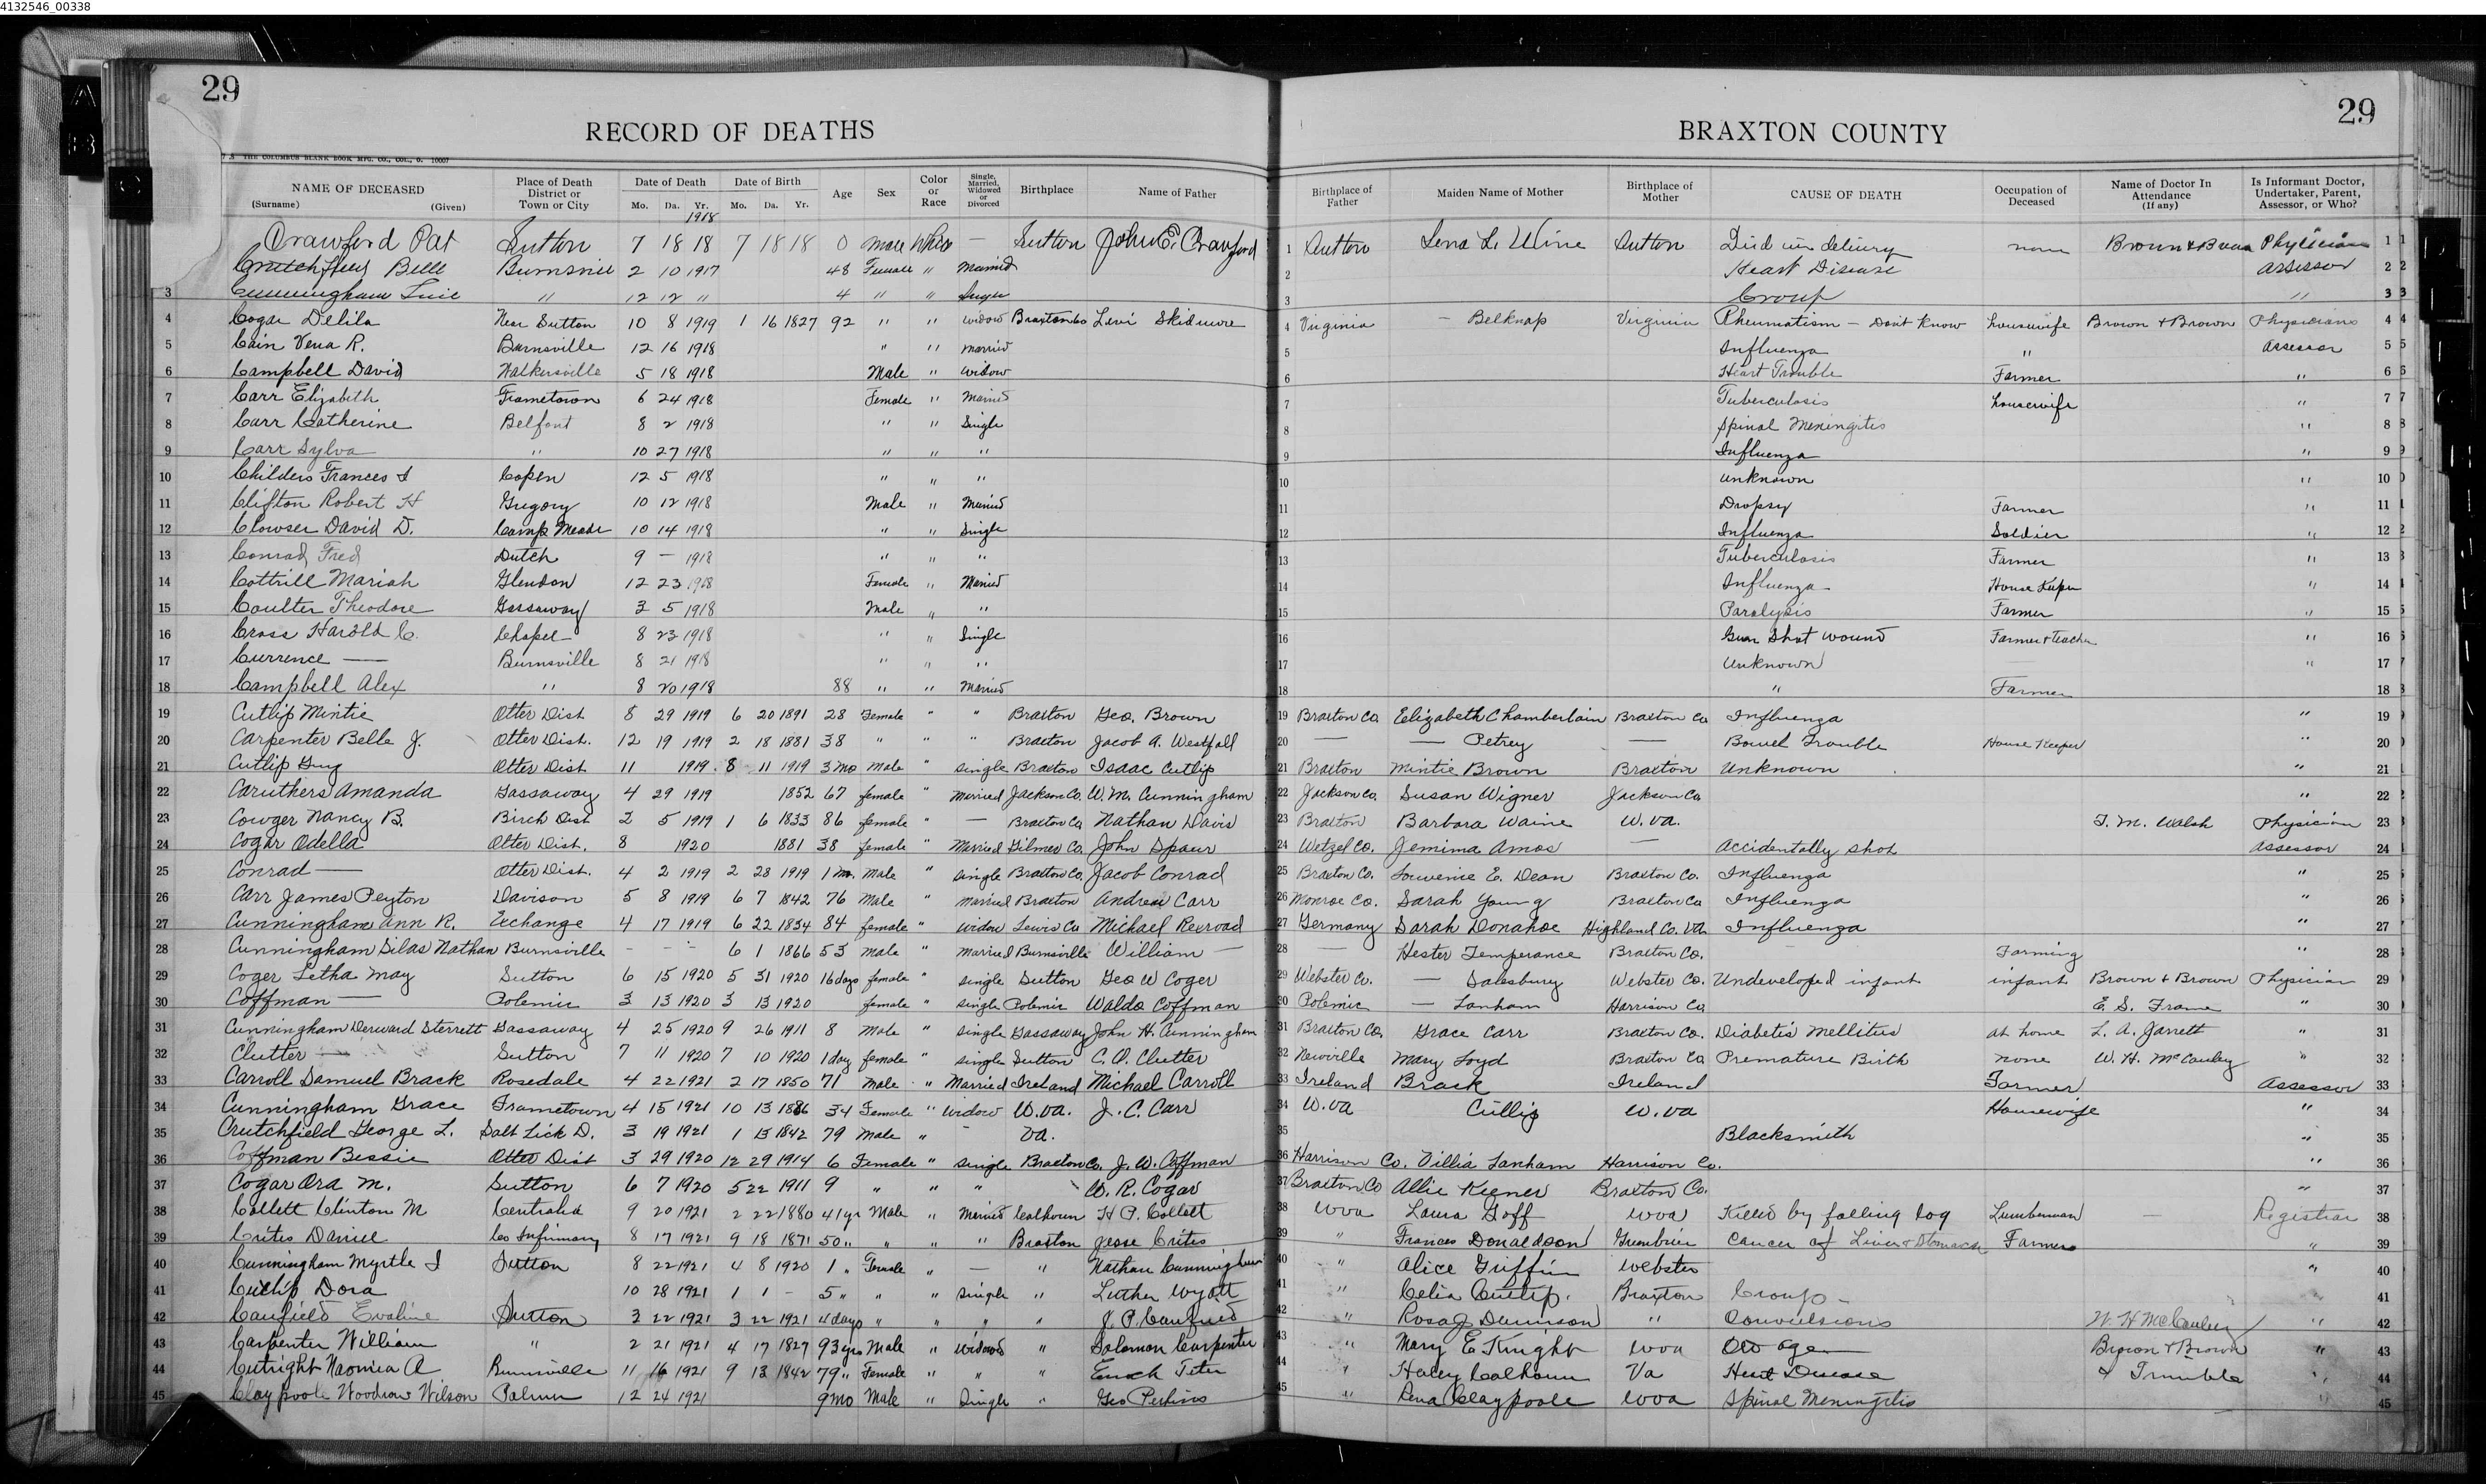 4132546_00338
29
RECORD OF DEATHS
7 S THE COLUMBUS BLANK BOOK MFG. CO., COL., O. 10007
NAME OF DECEASED (Surname) (Given) Place of Death District or Town or City Date of Death Mo. Da. Yr. Date of Birth Mo. Da. Yr. Age Sex Color or Race Single, Married, Widowed or Divorced Birthplace Name of Father
29
BRAXTON COUNTY
Birthplace of Father Maiden Name of Mother Birthplace of Mother CAUSE OF DEATH Occupation of Deceased Name of Doctor In Attendance (If any) Is Informant Doctor, Undertaker, Parent, Assessor, or Who?
1918
Crawford Pat Sutton 7 18 18 7 18 18 0 male White — Sutton John E. Crawford 1 Sutton Lena L. Wine Sutton Died in delivery none Brown & Physician 1
Crutchfield Belle Burnsville 2 10 1917 48 Female " Married 2 Heart Disease Assessor 2
3 Cunningham " 12 12 " 4 " " Single 3 Croup " 3
4 Cogar Delila Near Sutton 10 8 1919 1 16 1827 92 " " widow Braxton Co Levi Skidmore 4 Virginia — Belknap Virginia Rheumatism — Don't Know housewife Brown & Brown Physicians 4
5 Cain Vena R. Burnsville 12 16 1918 " " married 5 Influenza " Assessor 5
6 Campbell David Walkersville 5 18 1918 Male " widow 6 Heart Trouble Farmer " 6
7 Carr Elizabeth Frametown 6 24 1918 Female " Married 7 Tuberculosis housewife " 7
8 Carr Catherine Belfont 8 2 1918 " " Single 8 Spinal Meningitis " 8
9 Carr Sylva " 10 27 1918 " " " 9 Influenza " 9
10 Childers Frances I Copen 12 5 1918 " " " 10 unknown " 10
11 Clifton Robert H Gregory 10 12 1918 Male " Married 11 Dropsy Farmer " 11
12 Clowser David D. Camp Meade 10 14 1918 " " Single 12 Influenza Soldier " 12
13 Conrad Fred Dutch 9 — 1918 " " " 13 Tuberculosis Farmer " 13
14 Cottrill Mariah Glendon 12 23 1918 Female " Married 14 Influenza House Keeper " 14
15 Coulter Theodore Gassaway 3 5 1918 Male " " 15 Paralysis Farmer " 15
16 Cross Harold C. Chapel 8 23 1918 " " Single 16 Gun Shot wound Farmer & Teacher " 16
17 Currence — Burnsville 8 21 1918 " " " 17 Unknown " 17
18 Campbell Alex " 8 20 1918 88 " " Married 18 " Farmer 18
19 Cutlip Mintie Otter Dist 8 29 1919 6 20 1891 28 Female " " Braxton Geo. Brown 19 Braxton Co. Elizabeth Chamberlain Braxton Co Influenza " 19
20 Carpenter Belle J. Otter Dist. 12 19 1919 2 18 1881 38 " " " Braxton Jacob A. Westfall 20 — — Petrey — Bowel Trouble House Keeper " 20
21 Cutlip Guy Otter Dist 11 1919 8 11 1919 3 mo male " single Braxton Isaac Cutlip 21 Braxton Mintie Brown Braxton Unknown " 21
22 Caruthers Amanda Gassaway 4 29 1919 1852 67 female " married Jackson Co. W. M. Cunningham 22 Jackson Co. Susan Wigner Jackson Co " 22
23 Cowger Nancy B. Birch Dist 2 5 1919 1 6 1833 86 female " — Braxton Co Nathan Davis 23 Braxton Barbara Waine W. Va. T. M. Walsh Physician 23
24 Cogar Odella Otter Dist. 8 1920 1881 38 female " Married Gilmer Co. John Spaur 24 Wetzel Co. Jemima Amos — Accidentally shot Assessor 24
25 Conrad — Otter Dist. 4 2 1919 2 28 1919 1 mo. Male " single Braxton Co. Jacob Conrad 25 Braxton Co. Louvenie E. Dean Braxton Co. Influenza " 25
26 Carr James Peyton Davison 5 8 1919 6 7 1842 76 Male " married Braxton Andrew Carr 26 Monroe Co. Sarah Young Braxton Co Influenza " 26
27 Cunningham Ann R. Exchange 4 17 1919 6 22 1834 84 female " widow Lewis Co Michael Rexroad 27 Germany Sarah Donahoe Highland Co. Va. Influenza " 27
28 Cunningham Silas Nathan Burnsville - - - 6 1 1866 53 male married Burnsville William — 28 — Hester Temperance Braxton Co. Farming " 28
29 Coger Letha May Sutton 6 15 1920 5 31 1920 16 days female " single Sutton Geo W Coger 29 Webster Co. — Salesbury Webster Co. Undeveloped infant infant Brown & Brown Physician 29
30 Coffman — Polemic 3 13 1920 3 13 1920 female " single Polemic Waldo Coffman 30 Polemic — Lanham Harrison Co. E. S. Frame " 30
31 Cunningham Derward Sterrett Gassaway 4 25 1920 9 26 1911 8 Male " single Gassaway John H. Cunningham 31 Braxton Co. Grace Carr Braxton Co. Diabetis Mellitus at home L. A. Jarrett " 31
32 Clutter — Sutton 7 11 1920 7 10 1920 1 day female " single Sutton C. O. Clutter 32 Newville Mary Loyd Braxton Co Premature Birth none W. H. McCauley " 32
33 Carroll Samuel Brack Rosedale 4 22 1921 2 17 1850 71 male " Married Ireland Michael Carroll 33 Ireland Brack Ireland Farmer Assessor 33
34 Cunningham Grace Frametown 4 15 1921 10 13 1886 34 Female " Widow W. Va. J. C. Carr 34 W. Va Cutlip W. Va Housewife " 34
35 Crutchfield George L. Salt Lick D. 3 19 1921 1 13 1842 79 Male " - Va. 35 Blacksmith " 35
36 Coffman Bessie Otter Dist 3 29 1920 12 29 1914 6 Female " single Braxton Co. J. W. Coffman 36 Harrison Co. Villia Lanham Harrison Co. " 36
37 Cogar Ora M. Sutton 6 7 1920 5 22 1911 9 " " " W. R. Cogar 37 Braxton Co Allie Keener Braxton Co. " 37
38 Collett Clinton M Centralia 9 20 1921 2 22 1880 41 yr Male " Married Calhoun H P. Collett 38 W Va Laura Goff W Va Killed by falling log Lumberman — Registrar 38
39 Crites Daniel Co Infirmary 8 17 1921 9 18 1871 50 " " " " Braxton Jesse Crites 39 " Frances Donaldson Greenbrier Cancer of Liver & Stomach Farmer " 39
40 Cunningham Myrtle I Sutton 8 22 1921 4 8 1920 1 " Female " — " Nathan Cunningham 40 " Alice Griffin Webster " 40
41 Cutlip Dora 10 28 1921 1 1 - 5 " " " Single " Luther Wyatt 41 " Celia Cutlip. Braxton Croup - " 41
42 Canfield Evaline Sutton 3 22 1921 3 22 1921 4 days " " " " J. P. Canfield 42 " Rosa J Dennison " Convulsions W. H McCauley " 42
43 Carpenter William " 2 21 1921 4 17 1827 93 yrs Male " widowed " Solomon Carpenter 43 " Mary E Knight W Va Old age Brown & Brown " 43
44 Cutright Naomia A Burnsville 11 16 1921 9 13 1842 79 " Female " " " Enoch Teter 44 " Haley Calhoun Va Heart Disease Trimble " 44
45 Claypoole Woodrow Wilson Palmer 12 24 1921 9 mo Male " Single " Geo Perkins 45 " Rena Claypoole W Va Spinal Meningitis " 45